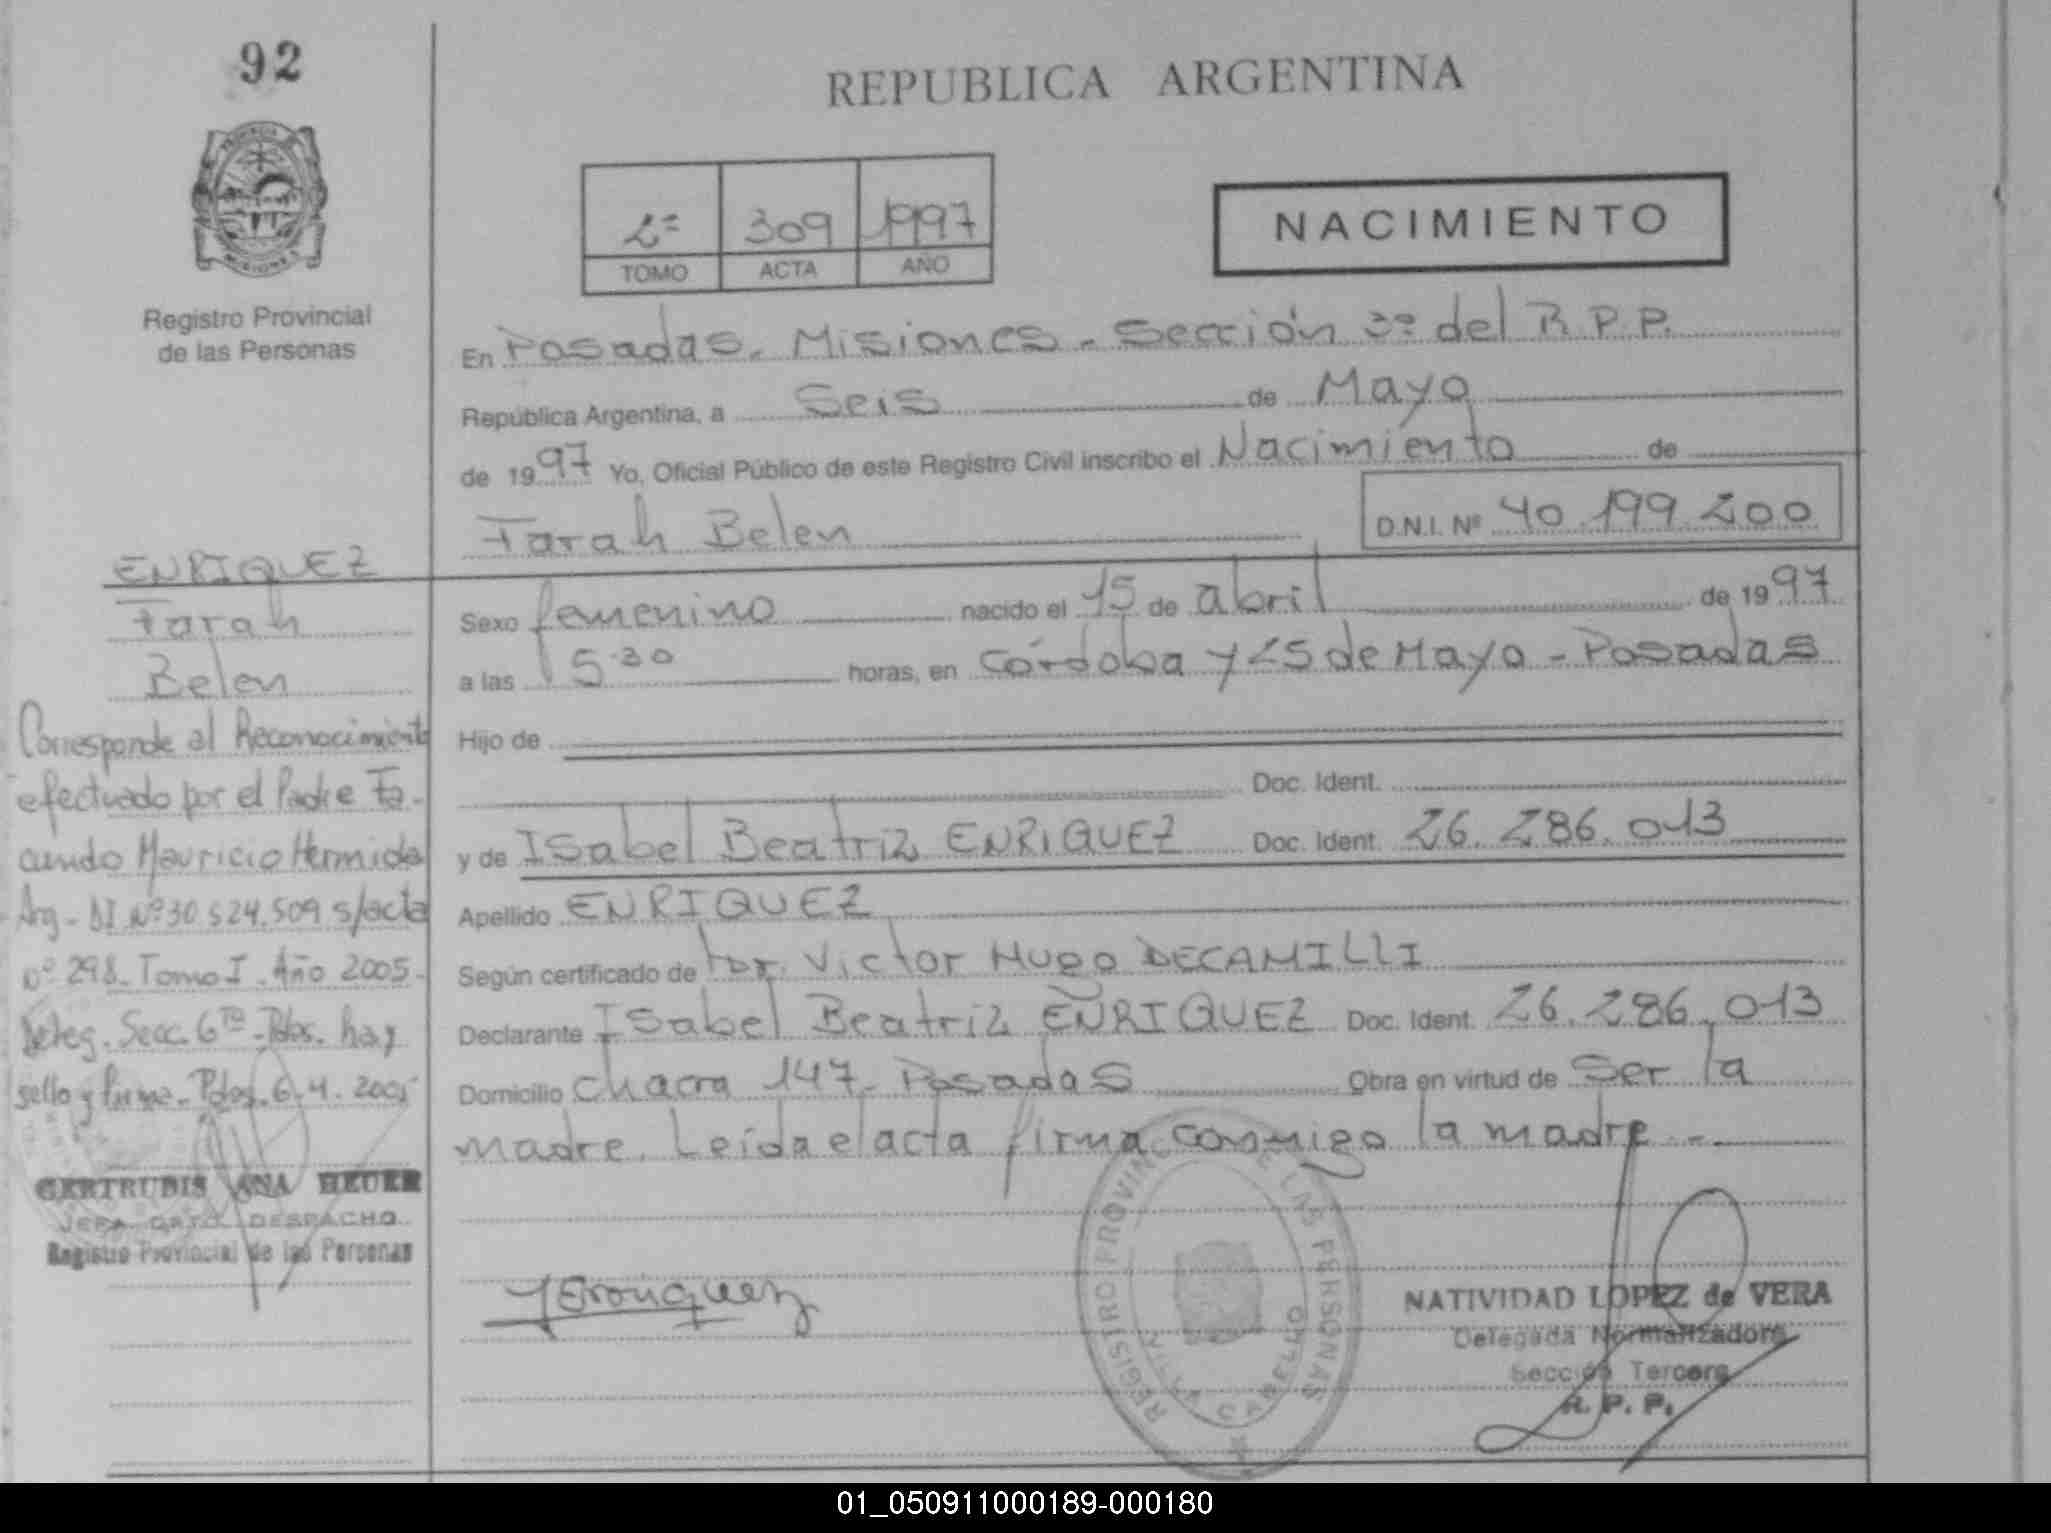 92
REPUBLICA ARGENTINA
PROVINCIA
MISIONES
Registro Provincial
de las Personas
2º 309 1997
TOMO ACTA AÑO
NACIMIENTO
En Posadas. Misiones - Sección 3º del R.P.P.
República Argentina, a Seis de Mayo
de 1997 Yo, Oficial Público de este Registro Civil inscribo el Nacimiento de
Farah Belen
D.N.I. Nº 40.199.200
Sexo femenino nacido el 15 de abril de 1997
a las 5.30 horas, en Córdoba y 25 de Mayo - Posadas
Hijo de
Doc. Ident.
y de Isabel Beatriz ENRIQUEZ Doc. Ident. 26.286.013
Apellido ENRIQUEZ
Según certificado de Victor Hugo DECAMILLI
Declarante Isabel Beatriz ENRIQUEZ Doc. Ident. 26.286.013
Domicilio chacra 147 - Posadas Obra en virtud de Ser la
madre. Leída el acta firma conmigo la madre -.
ENRIQUEZ
Farah
Belen
Corresponde al Reconocimiento
efectuado por el Padre Fa-
cundo Mauricio Hermida
Arg - DI Nº 30.524.509 s/acta
nº 298 - Tomo I - Año 2005 -
Deleg. Secc. 6ta - Pdas. hay
sello y firma - Pdas. 6.4.2005
GERTRUDIS ANA HEUER
JEFA DPTO DESPACHO
Registro Provincial de las Personas
REGISTRO PROVINCIAL DE LAS PERSONAS
NATIVIDAD LOPEZ de VERA
Delegada Normalizadora
Sección Tercera
R. P. P.
01_050911000189-000180